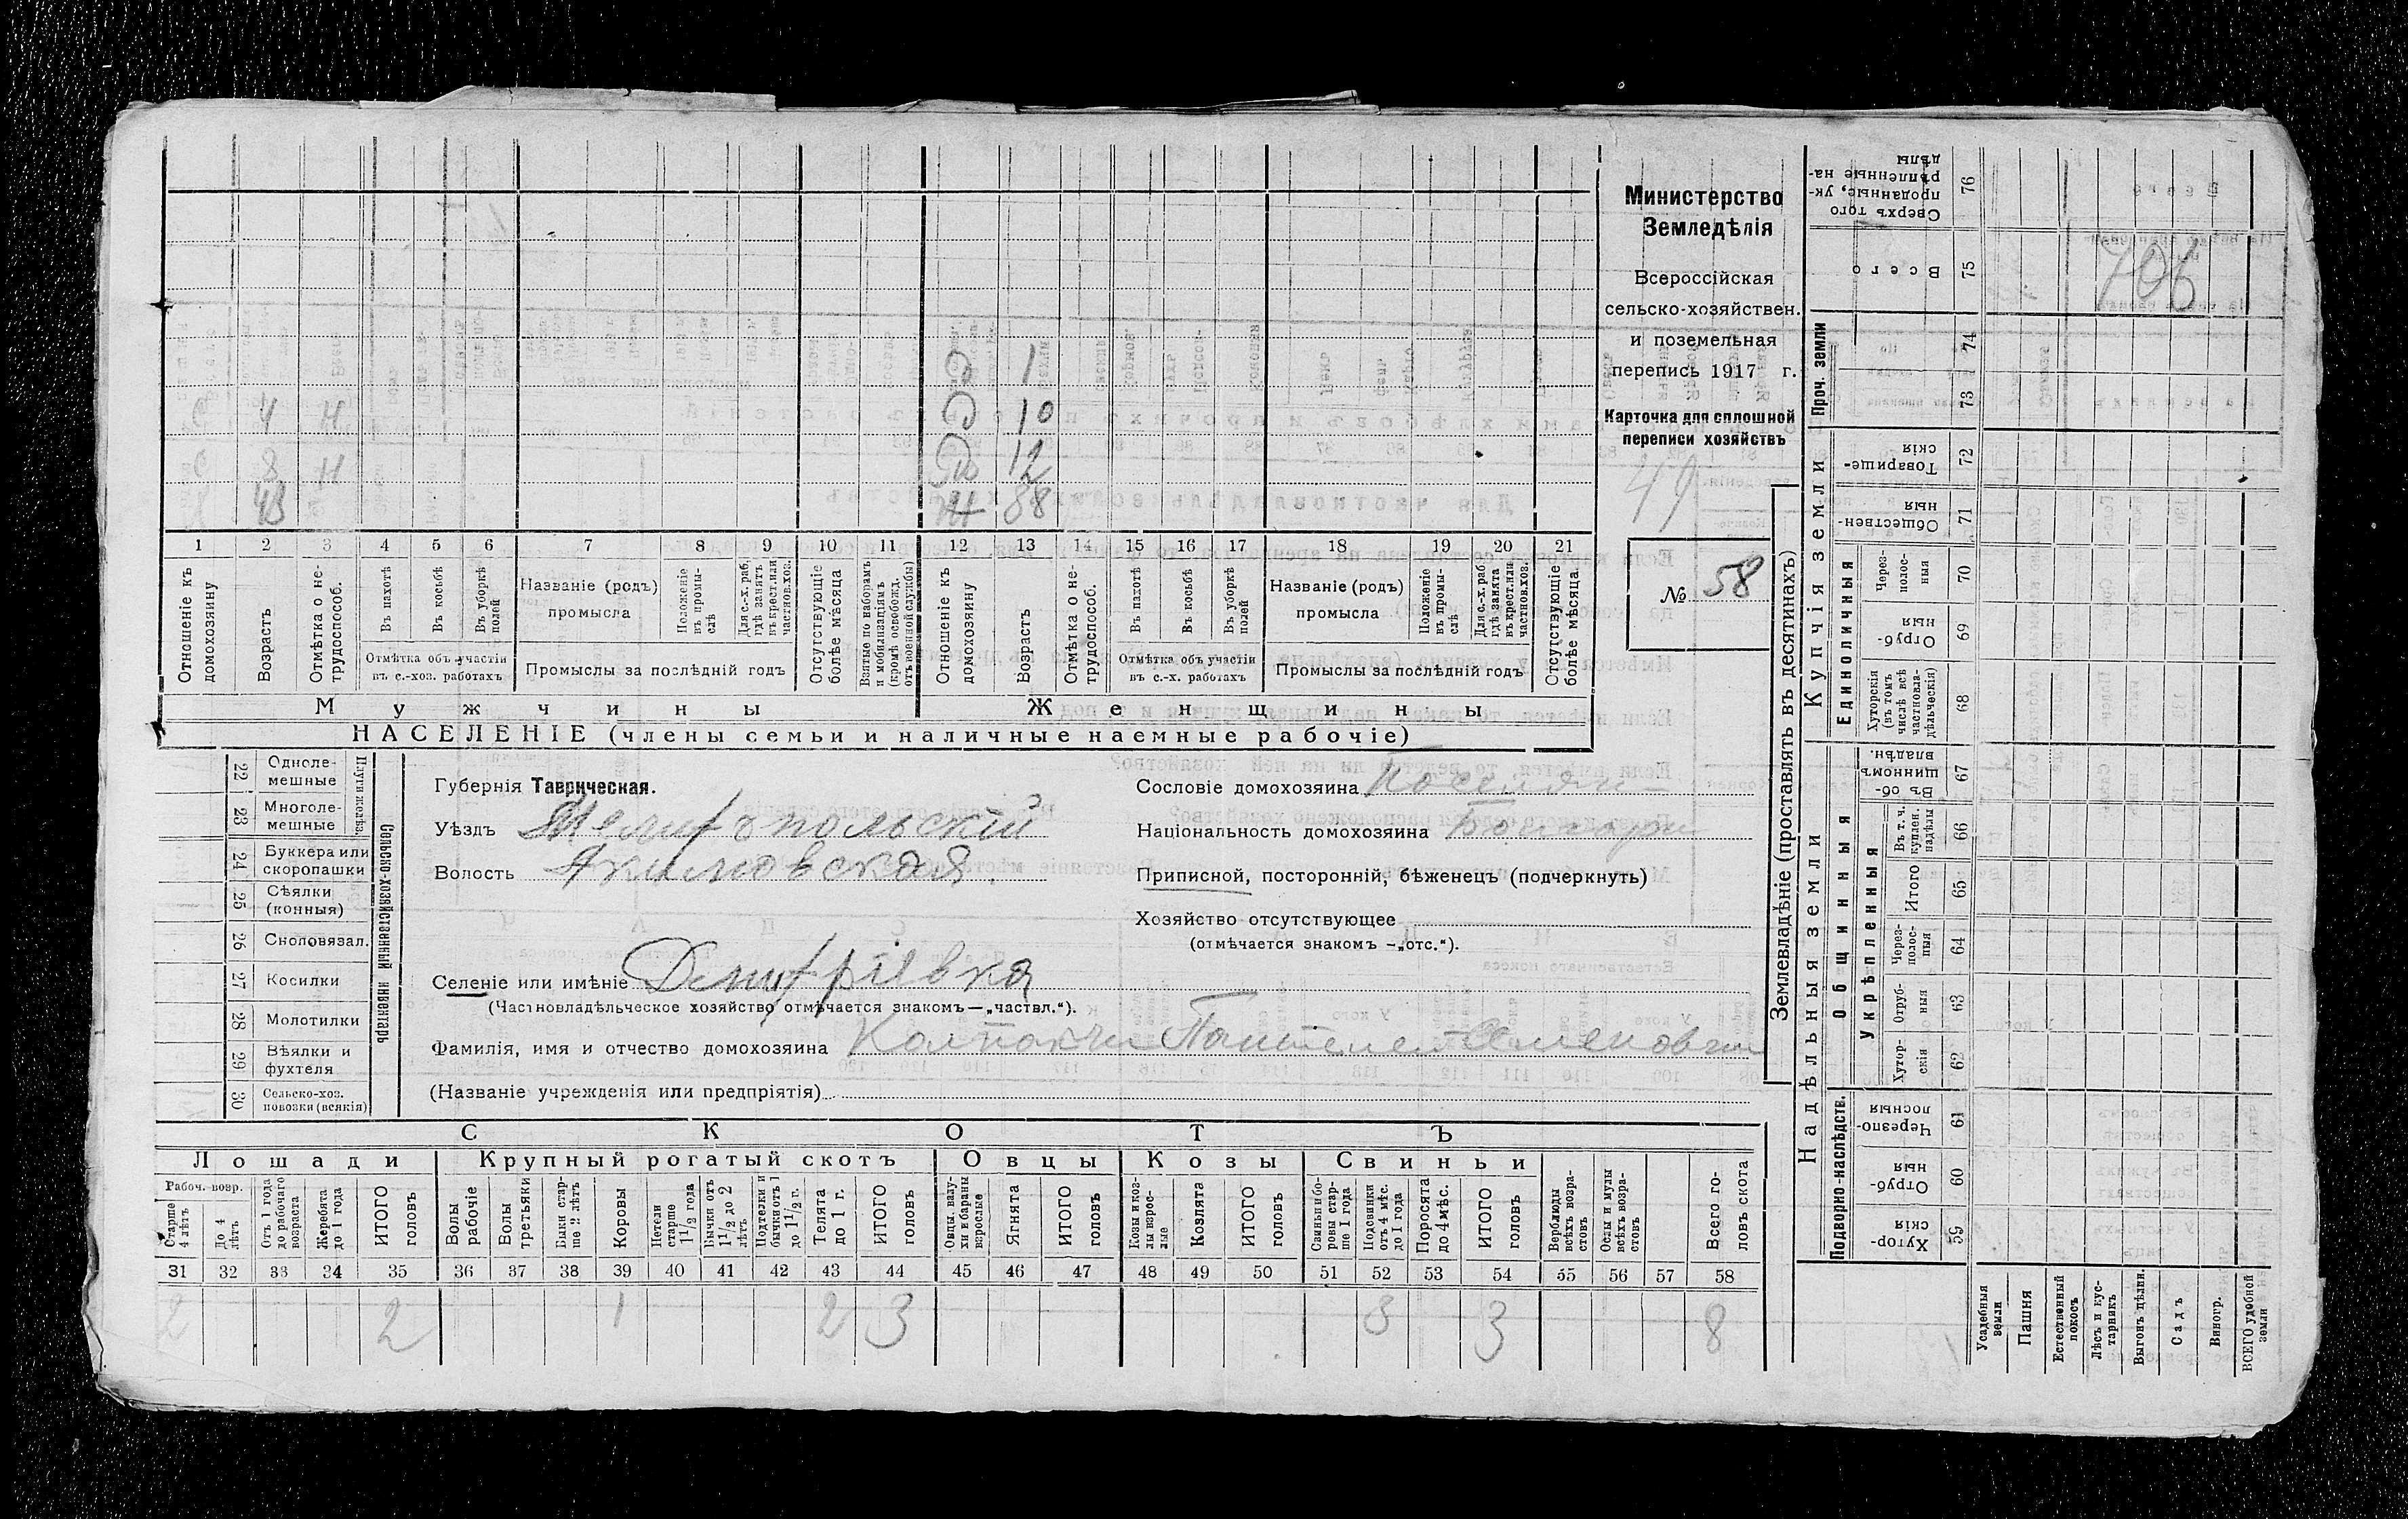 Министерство
Земледѣлія
Всероссійская
сельско-хозяйствен.
и поземельная
перепись 1917 г.
Карточка для сплошной
переписи хозяйствъ
49
№ 58
1
4 Н 10
8 Н 12
43 Ж
1 2 3 4 5 6 7 8 9 10 11 12 13 14 15 16 17 18 19 20 21
Отношеніе къ домохозяину
Возрастъ
Отмѣтка о не-трудоспособ.
Въ пахотѣ
Въ косьбѣ
Въ уборкѣ полей
Отмѣтка объ участіи
въ с.-хоз. работахъ
Названіе (родъ)
промысла
Положеніе въ промы-слѣ
Для с.-х. раб. гдѣ занятъ въ крест. или частнов. хоз.
Промыслы за послѣдній годъ
Отсутствующіе болѣе мѣсяца
Взятые по наборамъ и мобилизаціямъ (кромѣ освобожд. отъ военной службы)
Отношеніе къ домохозяину
Возрастъ
Отмѣтка о не-трудоспособ.
Въ пахотѣ
Въ косьбѣ
Въ уборкѣ полей
Отмѣтка объ участіи
въ с.-х. работахъ
Названіе (родъ)
промысла
Положеніе въ промы-слѣ
Для с.-х. раб. гдѣ занята въ крест. или частнов. хоз.
Промыслы за послѣдній годъ
Отсутствующіе болѣе мѣсяца
Мужчины Женщины
НАСЕЛЕНІЕ (члены семьи и наличные наемные рабочіе)
22 Одноле-мешные
23 Многоле-мешные
Плуги желѣз.
24 Буккера или скоропашки
25 Сѣялки (конныя)
26 Сноповязал.
27 Косилки
28 Молотилки
29 Вѣялки и фухтеля
30 Сельско-хоз. повозки (всякія)
Сельско-хозяйственный инвентарь
Губернія Таврическая.
Уѣздъ Мелитопольскій
Волость Акимовская
Селеніе или имѣніе Дмитріевка
(Частновладѣльческое хозяйство отмѣчается знакомъ—„частвл.“).
Фамилія, имя и отчество домохозяина Колпакчи Пантелей Семеновичъ
(Названіе учрежденія или предпріятія)
Сословіе домохозяина Поселян
Національность домохозяина Болгари
Приписной, посторонній, бѣженецъ (подчеркнуть)
Хозяйство отсутствующее
(отмѣчается знакомъ —„отс.“).
СКОТЪ
Лошади Крупный рогатый скотъ Овцы Козы Свиньи
Рабоч. возр.
Старше 4 лѣтъ
До 4 лѣтъ
Отъ 1 года до рабочаго возраста
Жеребята до 1 года
ИТОГО головъ
Волы рабочіе
Волы третьяки
Быки стар-ше 2 лѣтъ
Коровы
Нетели старше 1 1/2 года
Бычки отъ 1 1/2 до 2 лѣтъ
Подтелки и бычки отъ 1 до 1 1/2 г.
Телята до 1 г.
ИТОГО головъ
Овцы, валу-хи и бараны взрослые
Ягнята
ИТОГО головъ
Козы и коз-лы взрос-лые
Козлята
ИТОГО головъ
Свиньи и бо-ровы стар-ше 1 года
Подсвинки отъ 4 мѣс. до 1 года
Поросята до 4 мѣс.
ИТОГО головъ
Верблюды всѣхъ возра-стовъ
Ослы и мулы всѣхъ возра-стовъ
Всего го-ловъ скота
31 32 33 34 35 36 37 38 39 40 41 42 43 44 45 46 47 48 49 50 51 52 53 54 55 56 57 58
2 2 1 2 3 3 3 8
Землевладѣніе (проставлять въ десятинахъ)
Надѣльныя земли
Купчія земли
Проч. земли
Подворно-наслѣдств.
Общинныя
Укрѣпленныя
Единоличныя
76 Сверхъ того проданные, ук-рѣпленные на-дѣлы
75 Всего
74
73
72 Товарище-скія
71 Обществен-ныя
70 Через-полос-ныя
69 Отруб-ныя
68 Хуторскія (въ томъ числѣ всѣ частновла-дѣльческія)
67 Въ об-щинномъ владѣн.
66 Въ т. ч. куплен. надѣлы
65 Итого
64 Через-полос-ныя
63 Отруб-ныя
62 Хутор-скія
61 Черезпо-лосныя
60 Отруб-ныя
59 Хутор-скія
Усадебныя земли
Пашня
Естественный покосъ
Лѣсъ и кус-тарникъ
Выгонъ цѣлин.
Садъ
Виногр.
ВСЕГО удобной земли